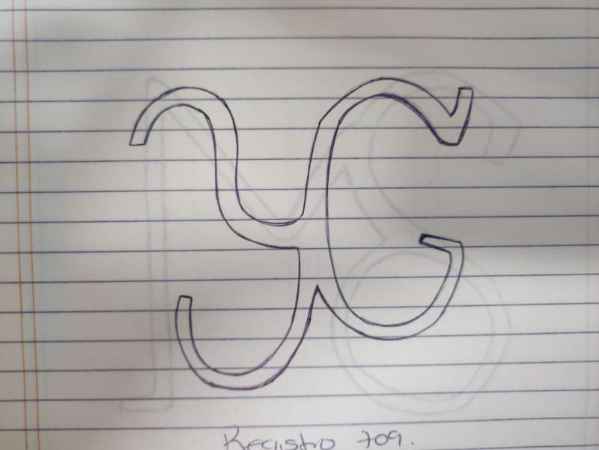 YC
Registro 709.